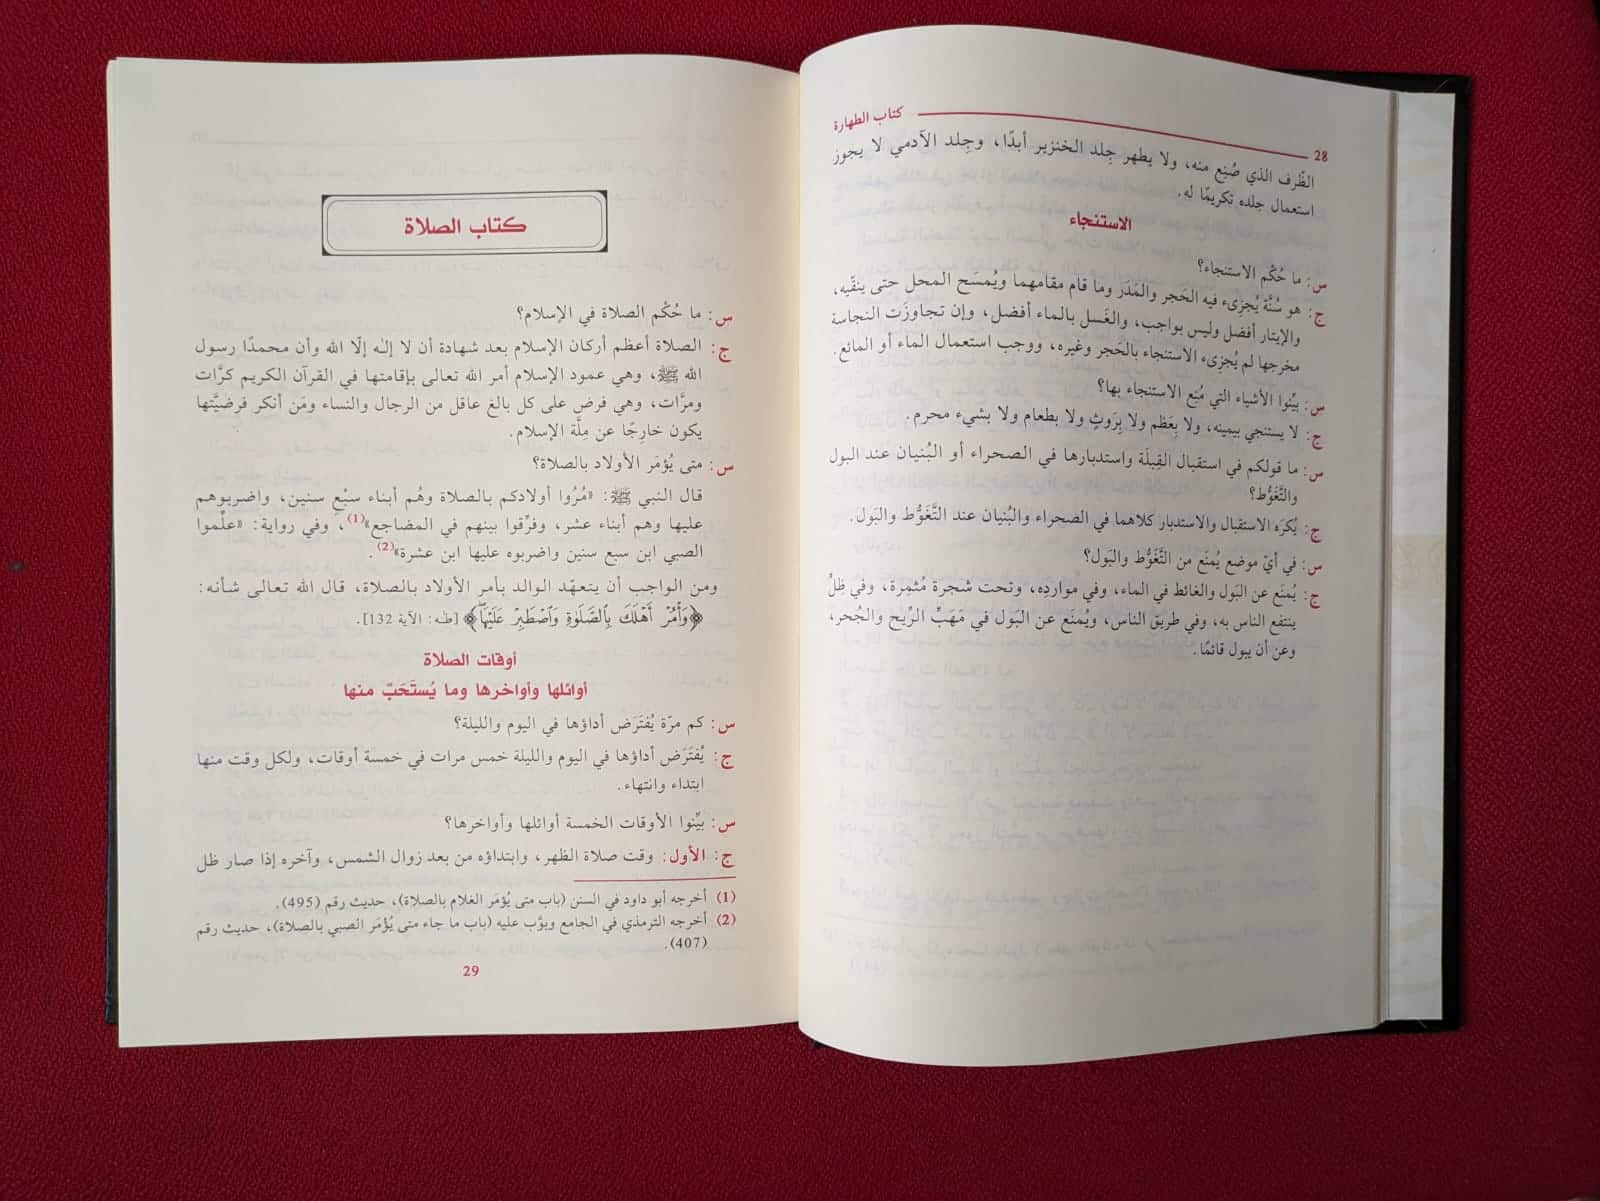 28 كتاب الطهارة
الظّرف الذي صُنِع منه، ولا يطهر جِلد الخنزير أبدًا، وجِلد الآدمي لا يجوز
استعمال جلده تكريمًا له.
الاستنجاء
س: ما حُكْم الاستنجاء؟
ج: هو سُنَّة يُجزِىء فيه الحَجر والمَدَر وما قام مقامهما ويُمسَح المحل حتى ينقّيه،
والإيتار أفضل وليس بواجب، والغَسل بالماء أفضل، وإن تجاوزَت النجاسة
مخرجها لم يُجزِىء الاستنجاء بالحَجر وغيره، ووجب استعمال الماء أو المائع.
س: بيِّنوا الأشياء التي مُنِع الاستنجاء بها؟
ج: لا يستنجي بيمينه، ولا بِعَظم ولا بِرَوثٍ ولا بطعام ولا بشيء محرم.
س: ما قولكم في استقبال القِبلَة واستدبارها في الصحراء أو البُنيان عند البول
والتَّغَوُّط؟
ج: يُكرَه الاستقبال والاستدبار كلاهما في الصحراء والبُنيان عند التَّغَوُّط والبَول.
س: في أيّ موضع يُمنَع من التَّغَوُّط والبَول؟
ج: يُمنَع عن البَول والغائط في الماء، وفي موارده، وتحت شجرة مُثمِرة، وفي ظِلّ
ينتفع الناس به، وفي طريق الناس، ويُمنَع عن البَول في مَهَبِّ الرِّيح والجُحر،
وعن أن يبول قائمًا.
كتاب الصلاة
س: ما حُكْم الصلاة في الإسلام؟
ج: الصلاة أعظم أركان الإسلام بعد شهادة أن لا إله إلّا الله وأن محمدًا رسول
الله ﷺ، وهي عمود الإسلام أمر الله تعالى بإقامتها في القرآن الكريم كرَّات
ومرَّات، وهي فرض على كل بالغ عاقل من الرجال والنساء ومَن أنكر فرضيَّتها
يكون خارِجًا عن مِلَّة الإسلام.
س: متى يُؤمَر الأولاد بالصلاة؟
قال النبي ﷺ: «مُرُوا أولادكم بالصلاة وهُم أبناء سبْع سنين، واضربوهم
عليها وهم أبناء عشر، وفرِّقوا بينهم في المضاجع»(1)، وفي رواية: «علِّموا
الصبي ابن سبع سنين واضربوه عليها ابن عشرة»(2).
ومن الواجب أن يتعهّد الوالد بأمر الأولاد بالصلاة، قال الله تعالى شأنه:
﴿وَأْمُرْ أَهْلَكَ بِالصَّلَوٰةِ وَاصْطَبِرْ عَلَيْهَا﴾ [طه: الآية 132].
أوقات الصلاة
أوائلها وأواخرها وما يُستَحَبّ منها
س: كم مرّة يُفتَرَض أداؤها في اليوم والليلة؟
ج: يُفتَرَض أداؤها في اليوم والليلة خمس مرات في خمسة أوقات، ولكل وقت منها
ابتداء وانتهاء.
س: بيِّنوا الأوقات الخمسة أوائلها وأواخرها؟
ج: الأول: وقت صلاة الظهر، وابتداؤه من بعد زوال الشمس، وآخره إذا صار ظل
(1) أخرجه أبو داود في السنن (باب متى يُؤمَر الغلام بالصلاة)، حديث رقم (495).
(2) أخرجه الترمذي في الجامع وبوَّب عليه (باب ما جاء متى يُؤمَر الصبي بالصلاة)، حديث رقم
(407).
29